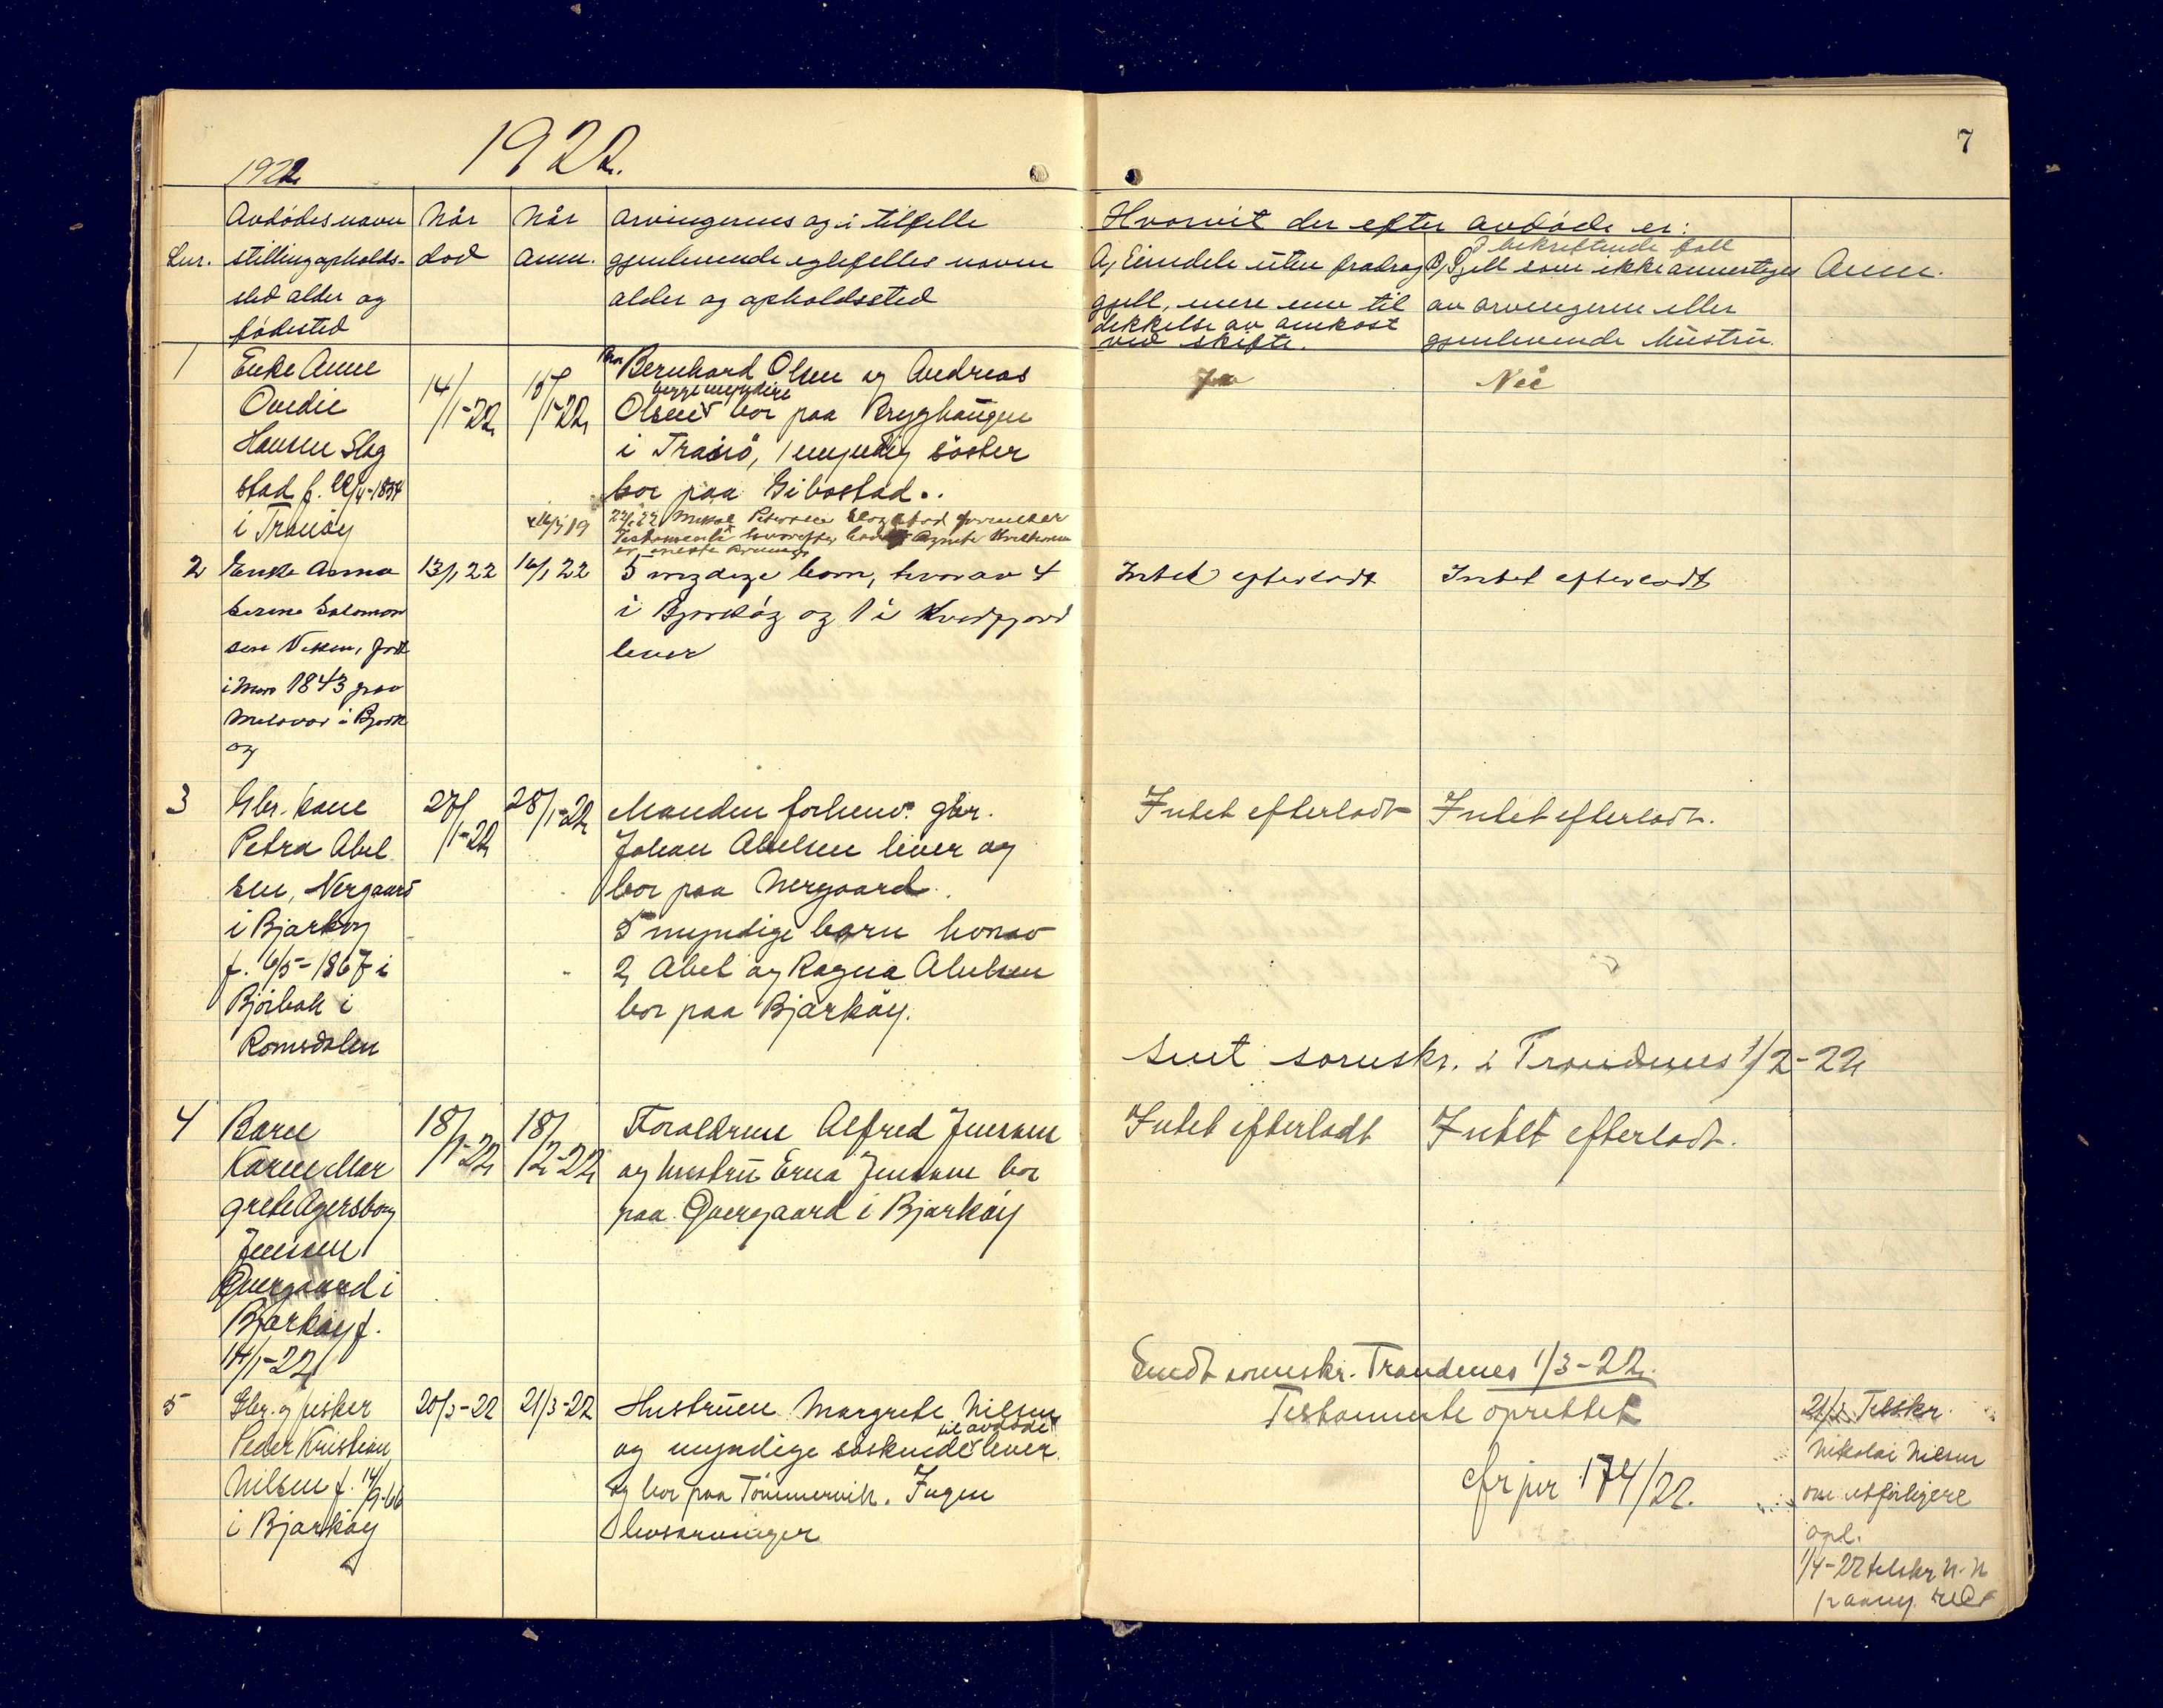 1922.
1922
7
Lnr.
Avdödes navn
stilling opholds-
sted alder og
födested
Når
död
Når
anm.
Arvingernes og i tilfelle
gjenlevende egtefelles navn
alder og opholdssted
Hvorvit der efter avdöde er:
A, Eiendele uten fradrag
gjell, mere enn til
dekkelse av omkost
ved skifte.
I bekreftende fall
B, Gjell som ikke anmerktes
av arvingerne eller
gjenlevende hustru.
Anm.
1
Enke Anne
Ovedie
Hansen Slag
stad f. 22/4-1834
i Tranöy
14/1-22
15/1-22
Bernhard Olsen og Andreas
begge myndige
Olsen bor paa Brygghaugen
i Tranö, 1 myndig söster
bor paa Gibostad..
Petersen Slagstad
Testamente hvorefter Agnete Kristensen
er eneste arving
Ja
Nei
2
Enke Anna
Serine Salomon
sen Vikken, födt
i Mars 1843 paa
Melavær i Bjark
øy
13/1 22
16/1 22
5 myndige barn, hvorav 4
i Bjarköy og 1 i Kvedfjord
lever
Intet efterladt
Intet efterladt
3
Gbr. kone
Petra Abel
sen, Nergaard
i Bjarköy
f. 6/5-1867 i
Björbak i
Romsdalen
27/1-22
28/1-22
Manden forhenv. gbr.
Johan Abelsen lever og
bor paa Nergaard.
5 myndige barn hvorav
2, Abel og Ragna Abelsen
bor paa Bjarköy.
Intet efterladt
Intet efterladt.
Sent sorenskr. i Trondenes 1/2-22
4
Barn
Karen Mar
grete Agersborg
Jenssen
Övergaard i
Bjarköy f.
14/1-22
18/1-22
18/2-22
Foraldrene Alfred Jenssen
og hustru Erna Jenssen bor
paa Övergaard i Bjarköy
Intet efterladt
Intet efterladt.
Sendt sorenskr. Trondenes 1/3-22.
5
Gbr. og fisker
Peder Kristian
Nilsen f. 14/9-66
i Bjarköy
20/3-22
21/3-22
Hustruen Margrete Nilsen
til avdöde
og myndige söskende lever
og bor paa Tömmervik. Ingen
livsarvinger
Testamente oprettet
cfr jnr 174/22.
21/3 Tilskr.
Nikolai Nilsen
om utförligere
opl.
1/4-22 tilskr N.N
paany